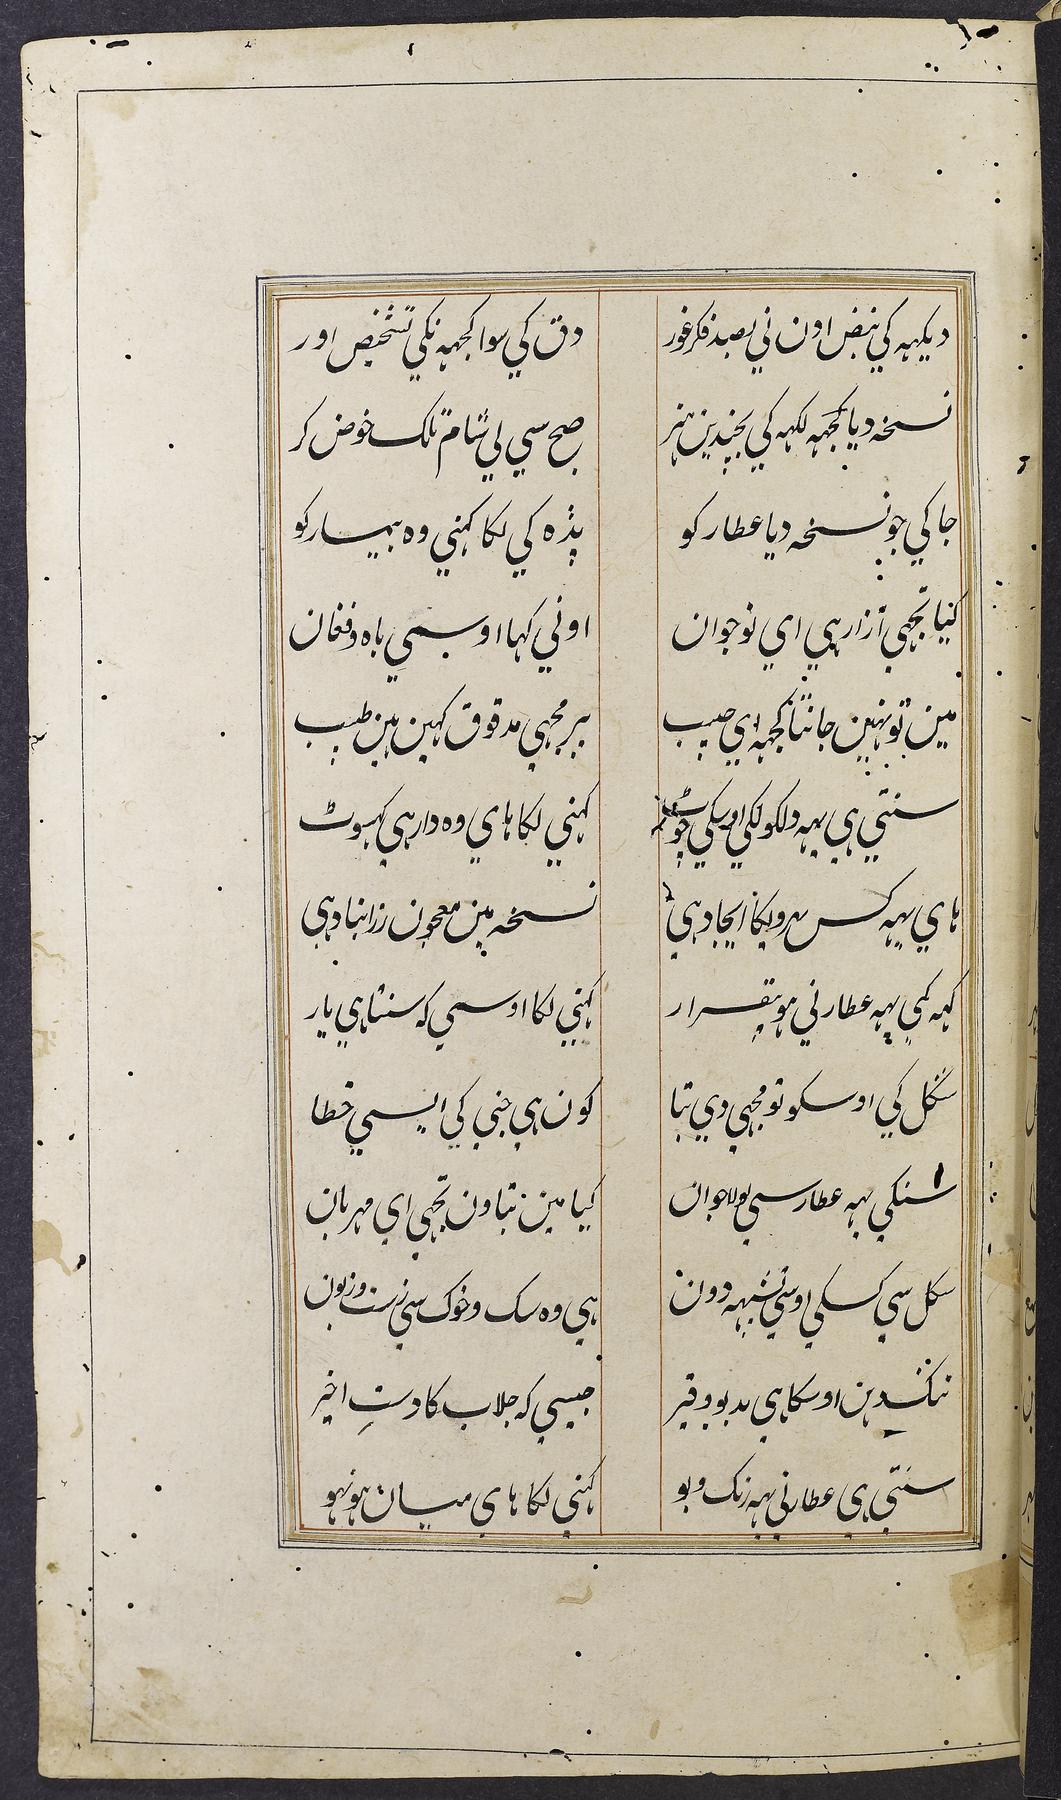 دیکهه کي نبض اون ني بصد فکر غور
دق کي سوا کجهه نکي تشخیص اور
نسخه دیا کجهه لکهه کي بچندین هنر
صبح سي لي شام تلک خوض کر
جا کي جو نسخه دیا عطار کو
پڎه کي لکا کهني وه بیمار کو
کیا تجهي آزار هي اي نوجوان
اوني کها اوسي باه و فغان
مین تو نهین جانتا کجهه اي حبیب
پر مجهي مدقوق کهین هین طبیب
سنتي هي یهه دلکو لکي اوسکي چوٹ
کهني لکا هاي وه دارهي کهسوٹ
هاي یهه کس سرویکا ایجاد هي
نسخه مین معجون زرانباد هي
کهه کي یهه عطار ني هو بیقرار
کهني لکا اوسي که سنتا هي یار
شکل کي اوسکو تو مجهي دي بتا
کون هي جني کي ایسي خطا
سنکي یهه عطار سي بولا جوان
کیا مین بتاون تجهي اي مهربان
شکل سي کسکي اوسي تشبیهه دون
هي وه سک و خوک سي زشت و زبون
کنده دهن اوسکا هي بدبو و قیر
جیسي که جلاب کا دستِ اخیر
سنتي هي عطار ني یهه رنک و بو
کهني لکا هاي میان هو نهو